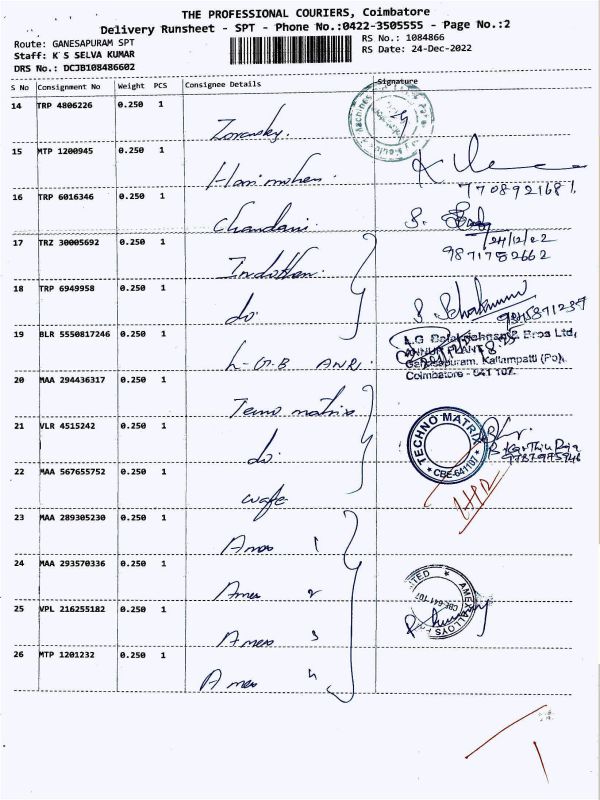 THE PROFESSIONAL COURIERS, Coimbatore
Delivery Runsheet - SPT - Phone No.:0422-3505555 - Page No.:2
Route: GANESAPURAM SPT
RS No.: 1084866
Staff: K S SELVA KUMAR
RS Date: 24-Dec-2022
DRS No.: DCJB108486602
S No Consignment No Weight PCS Consignee Details Signature
14 TRP 4806226 0.250 1
15 MTP 1200945 0.250 1 Hari mohan
7708921681
16 TRP 6016346 0.250 1 Chandani
24/12/22
17 TRZ 30005692 0.250 1
9871752662
18 TRP 6949958 0.250 1 do
19 BLR 5550817246 0.250 1 L-G-B ANR
L.G Balakrishnan & Bros Ltd,
ANNUR PLANT
Ganesapuram, Kallampatti (Po),
Coimbatore - 641 107.
20 MAA 294436317 0.250 1 Tecno matrix
21 VLR 4515242 0.250 1 do
TECHNO MATRIX
* CBE-641107 *
22 MAA 567655752 0.250 1 wafe
23 MAA 289305230 0.250 1 Amex 1
24 MAA 293570336 0.250 1 Amex 2
25 VPL 216255182 0.250 1 Amex 3
AMEX ALLOYS
CBE-641 107
26 MTP 1201232 0.250 1 Amex 4